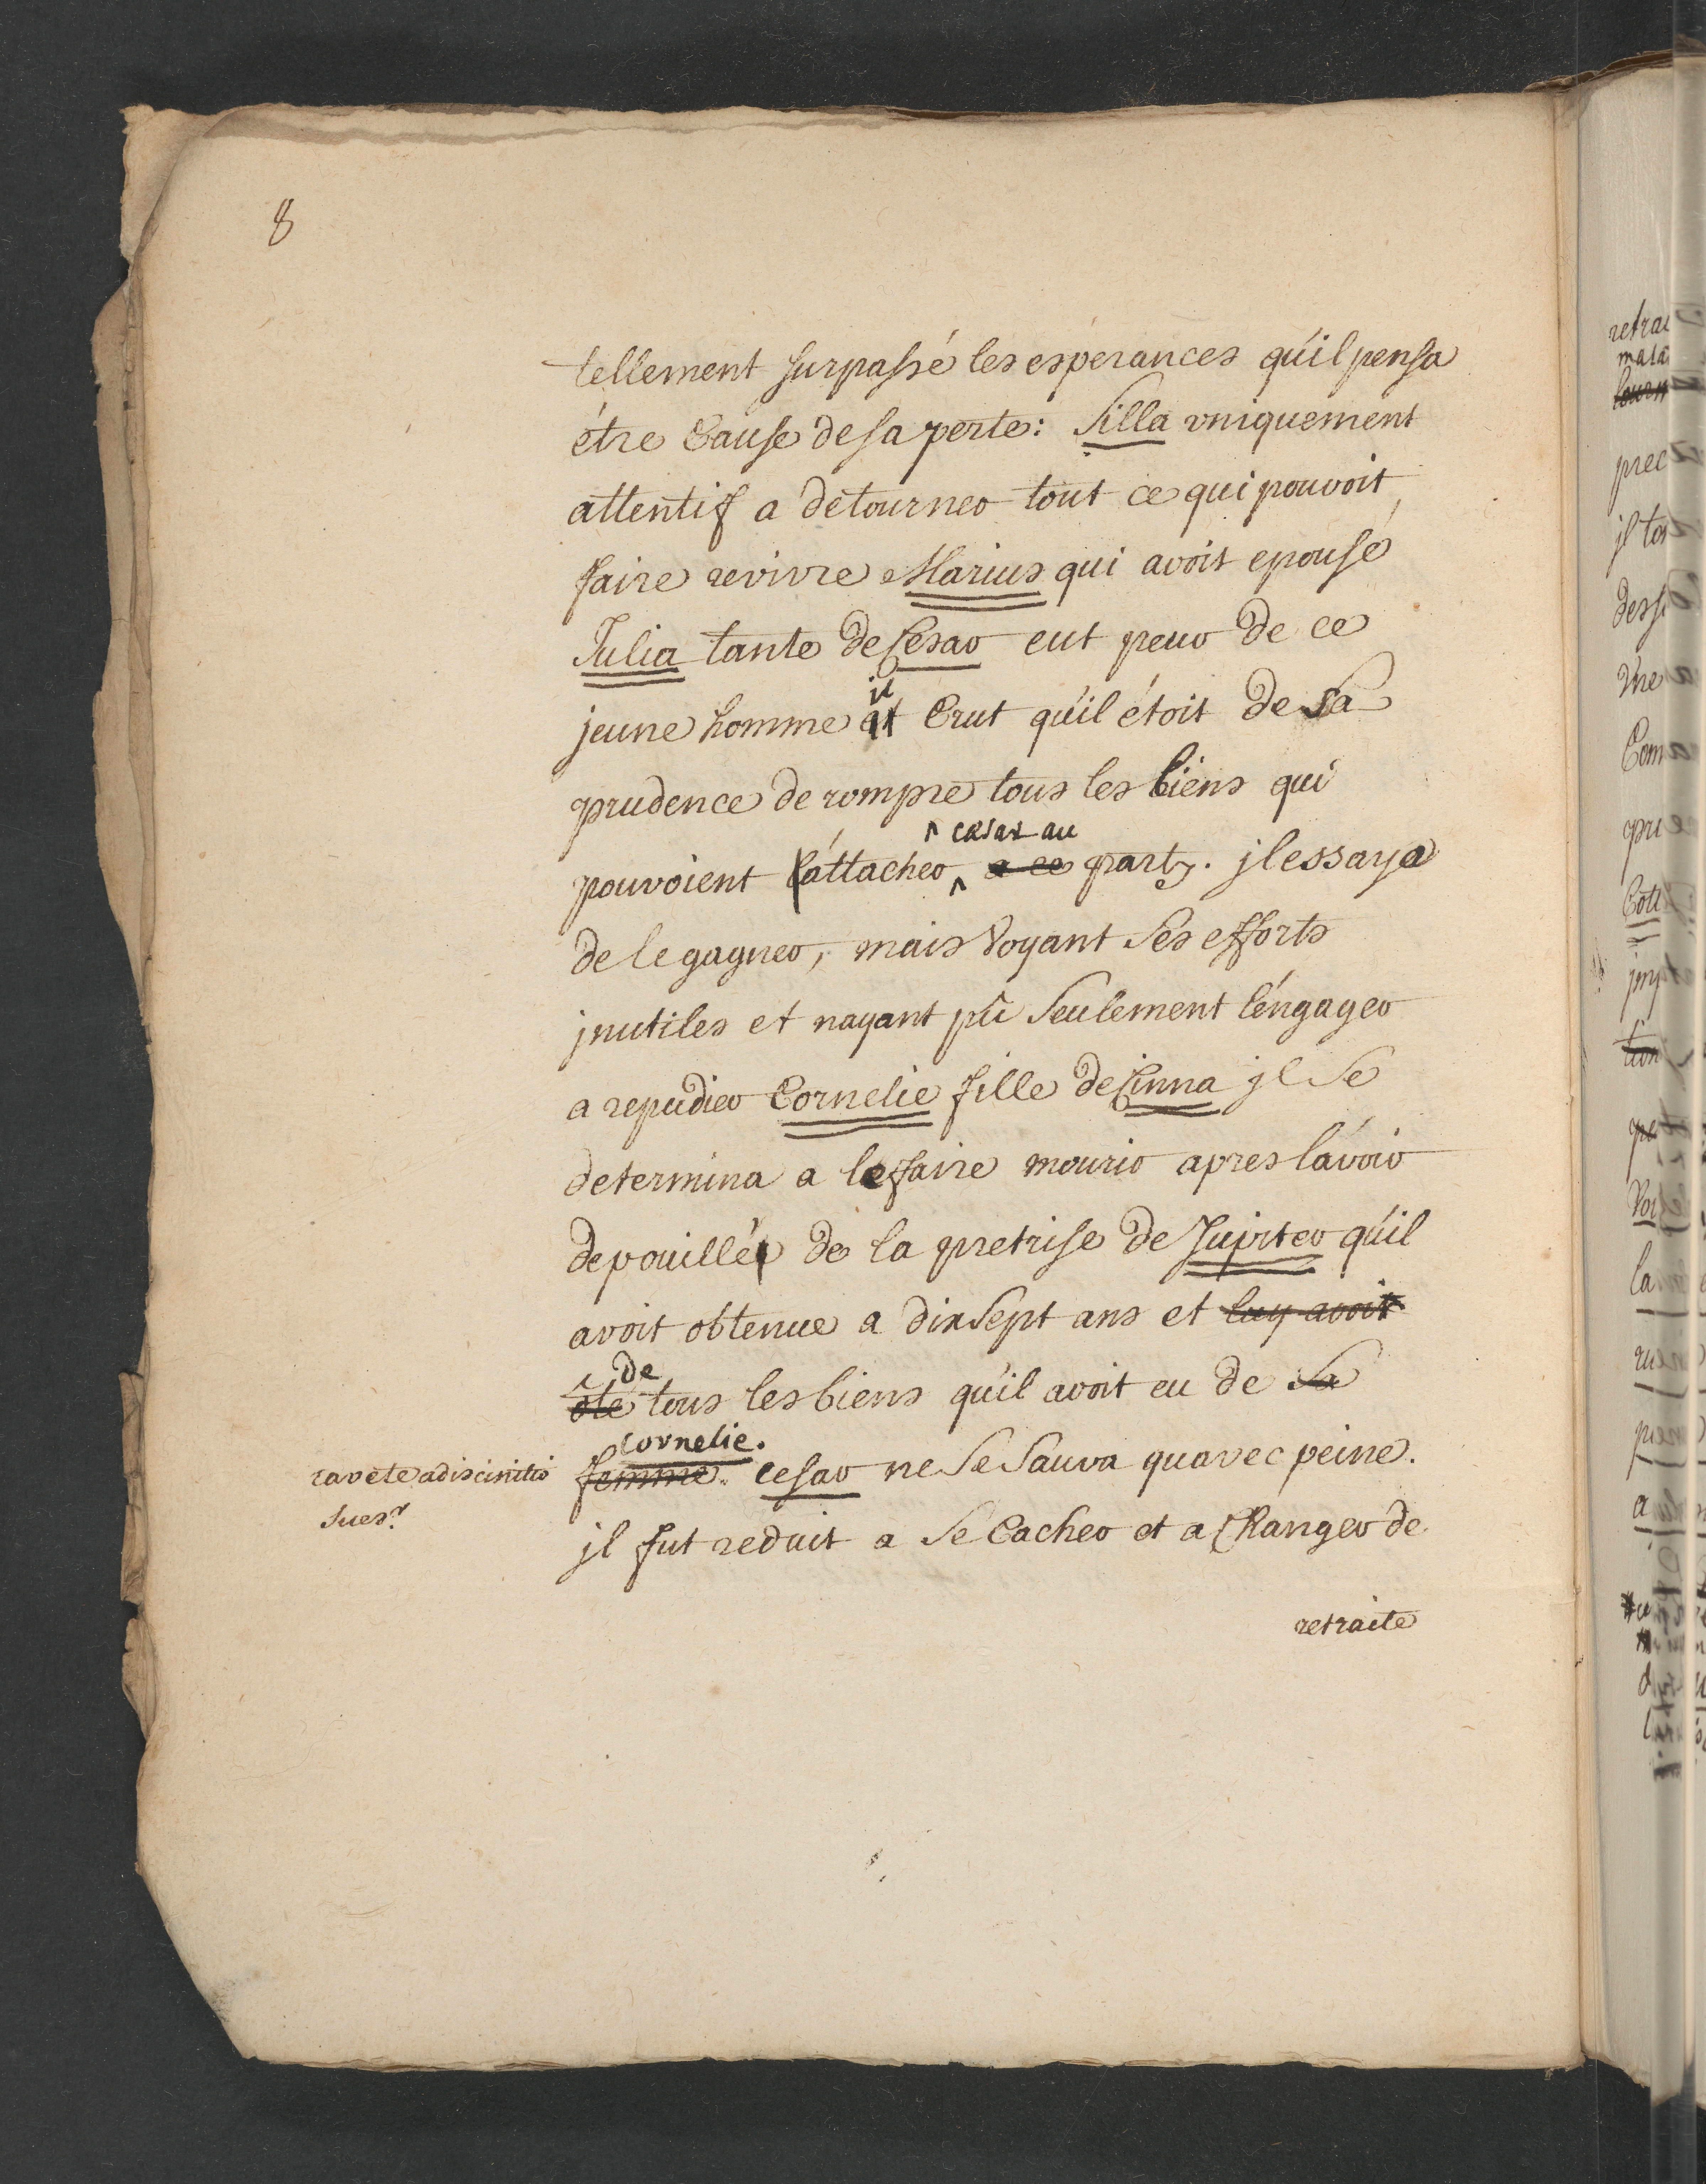 8
tellement surpassé les esperances qu'il pensa
étre Cause de sa perte: Silla uniquement
attentif a detourner tout ce qui pouvoit
faire revivre Marius qui avoit epousé
Julia tante de Cesar eut peur de ce
jeune homme il Crut qu'il étoit de sa
prudence de rompre tous les liens qui
cesar au
pouvoient l'attacher a ce party. jl essaya
de le gagner, mais Voyant Ses efforts
jnutiles et nayant pû Seulement l'éngager
a repudier Cornelie fille de Cinna jl Se
determina a le faire mourir apres l'avoir
depouillé de la pretrise de Jupiter qu'il
avoit obtenue a dixsept ans et luy avoit
de
ôté tous les biens qu'il avoit eu de Sa
Cornelie.
femme. cesar ne Se Sauva quavec peine.
cavete a discinctio
Suet.
jl fut reduit a Se Cacher et a Changer de
retraite